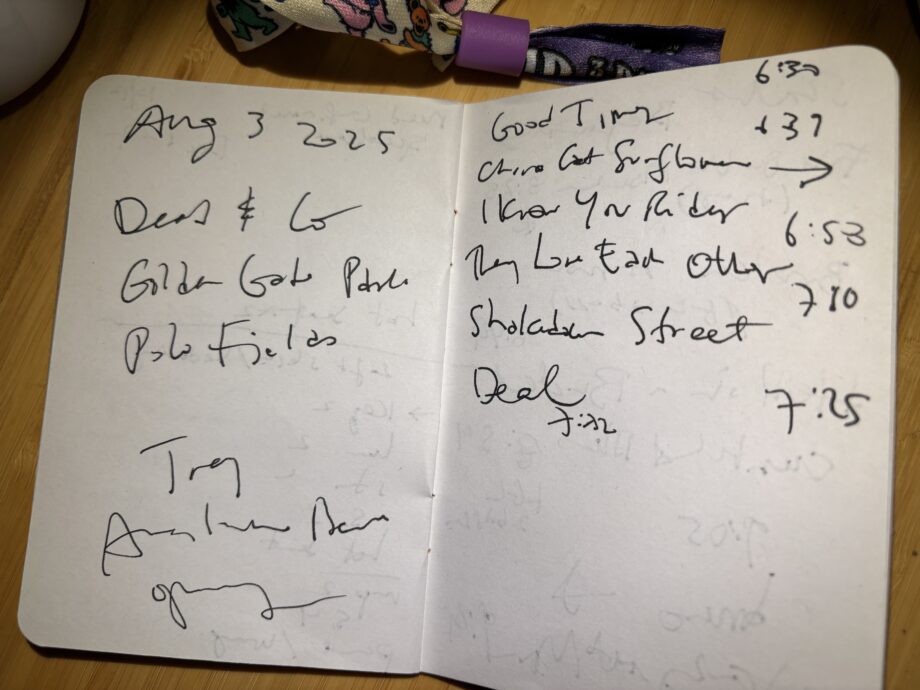 Aug 3 2025
Dead & Co
Golden Gate Park
Polo Fields
Trey
Anastasio Band
opening
6:30
Good Times
6 37
China Cat Sunflower →
I Know You Rider
6:53
They Love Each Other
7:10
Shakedown Street
Deal
7:25
7:32